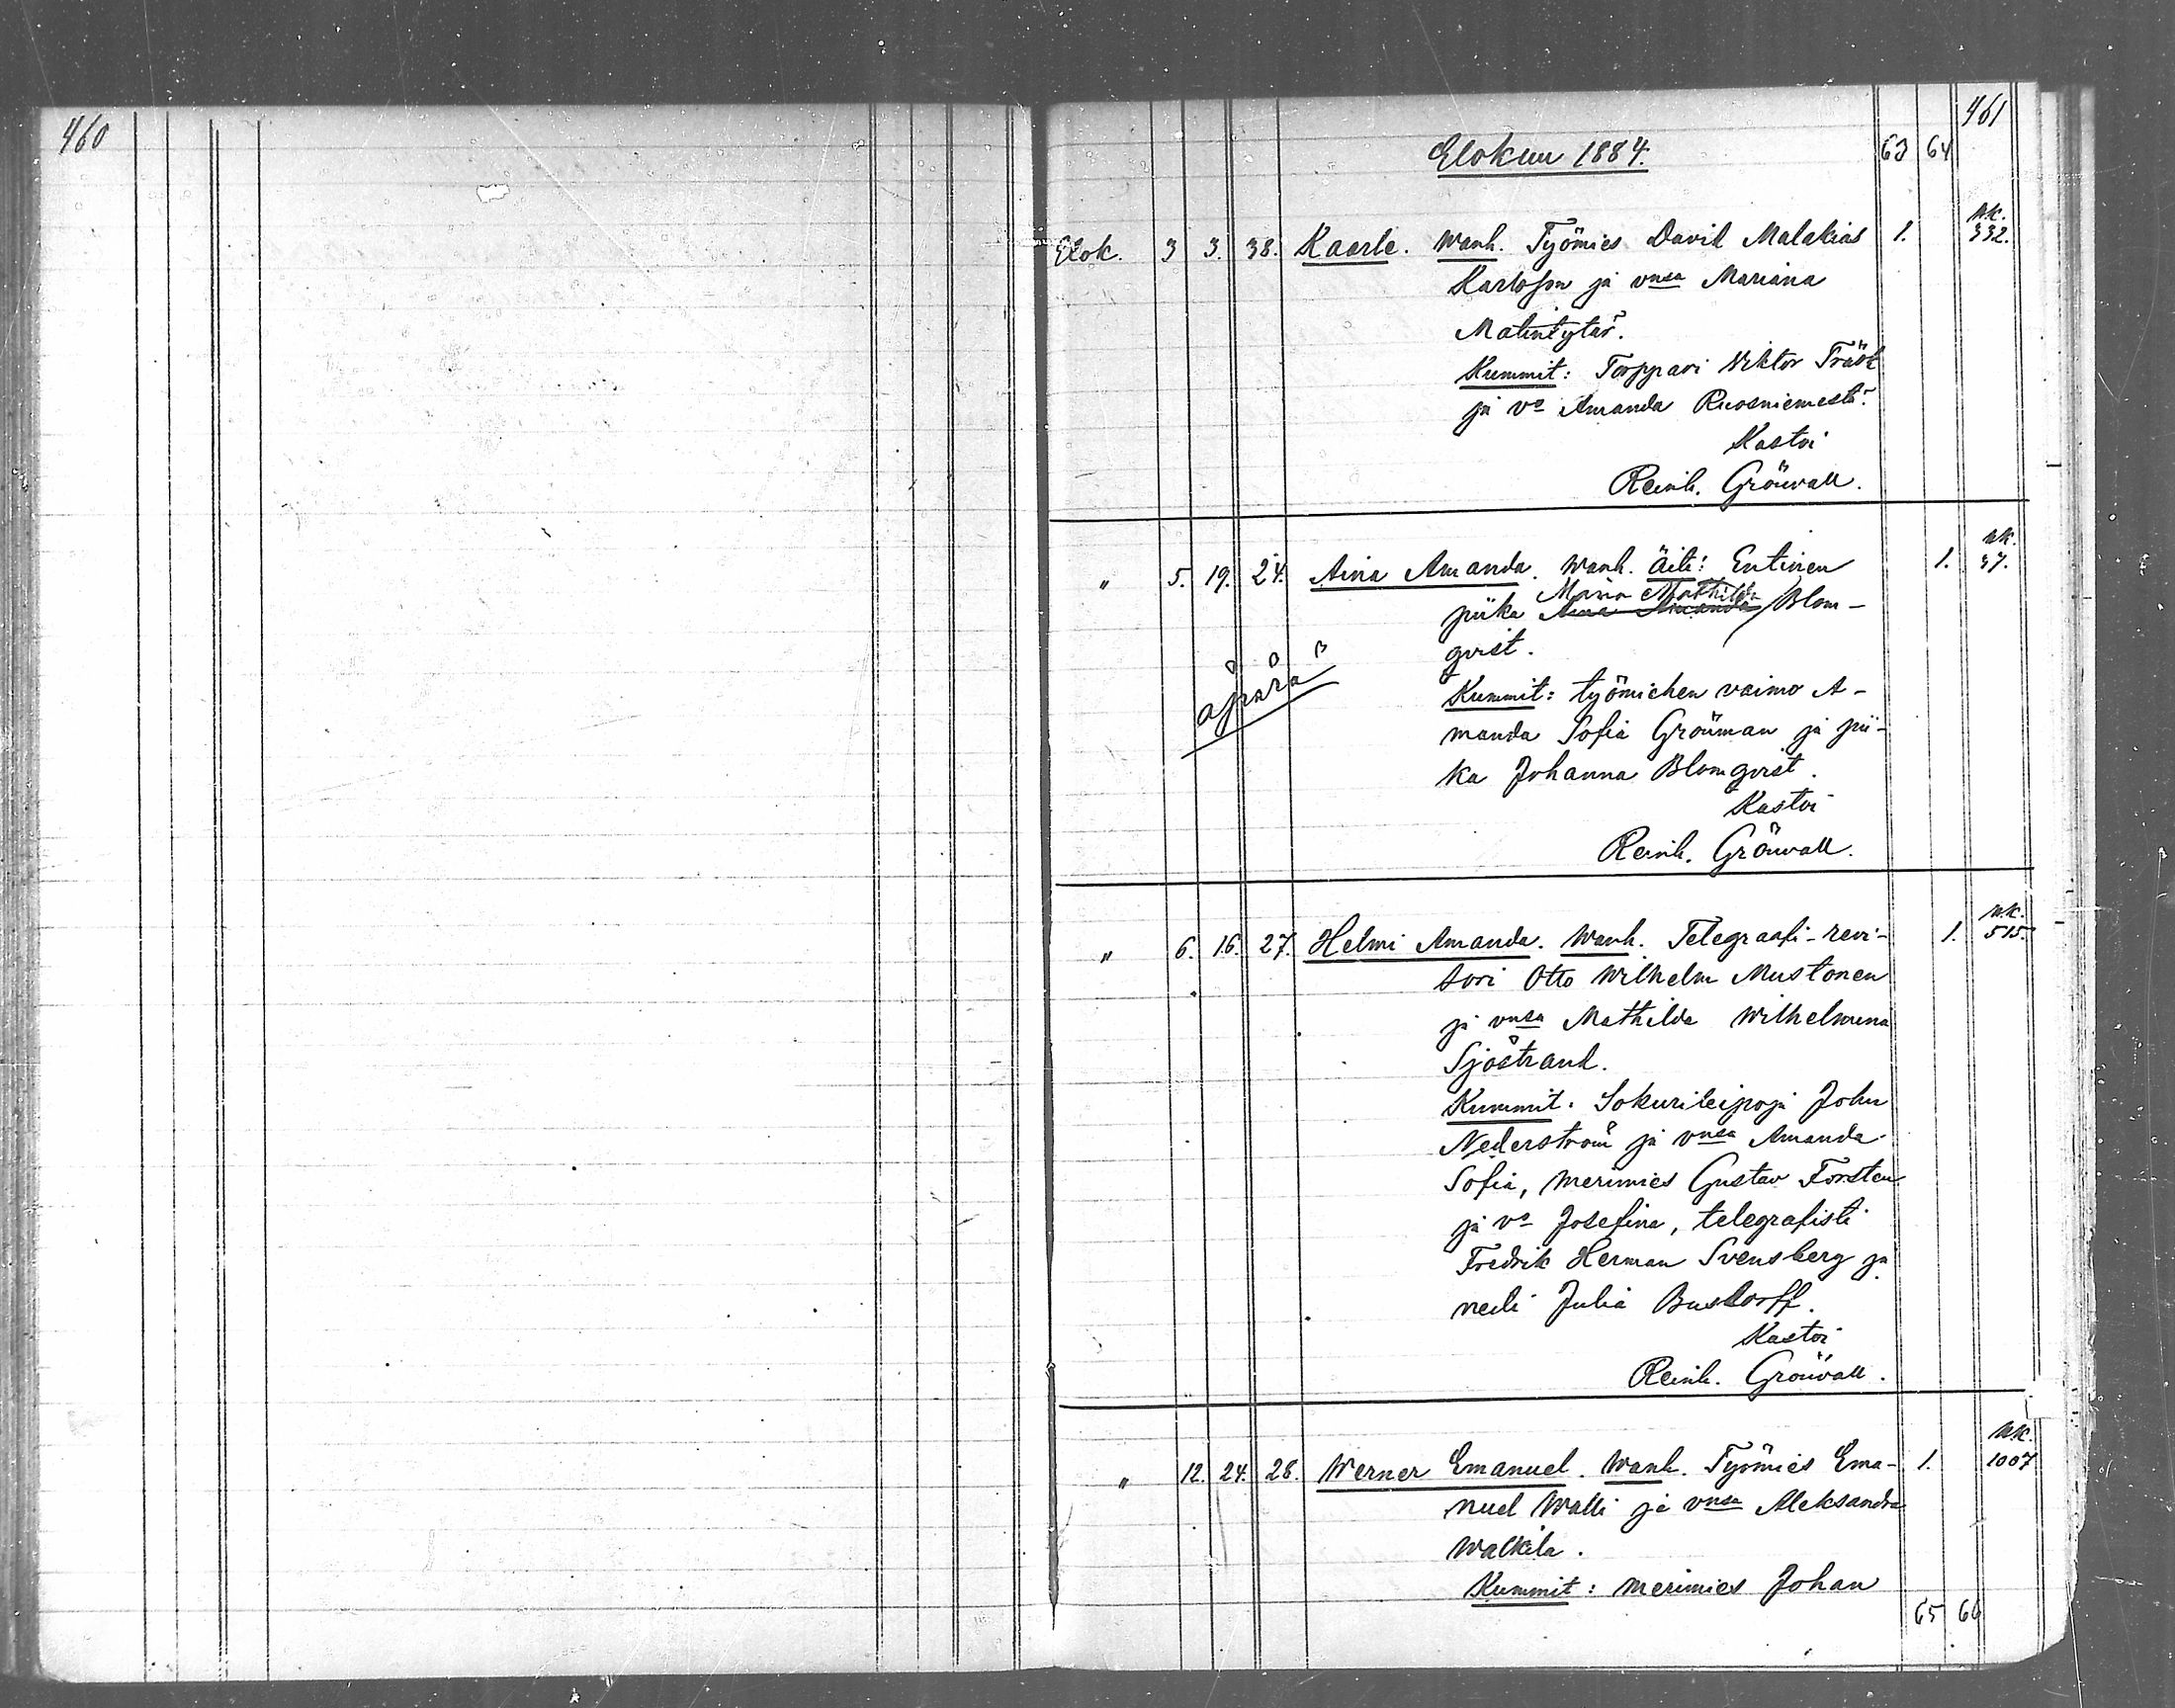 460
461
Elokuu 1884.
63 64
Elok. 3 3. 38. Kaarle. Wanh. Työmies David Malakias 1. RK. 332.
Karlsson ja vnsa Mariana
Matintytär.
Kummit: Torppari Viktor Träsk
ja vo Amanda Ruosniemestä.
Kastoi
Reinh. Grönvall.
" 5. 19. 24. Aina Amanda. Wanh. Äiti: Entinen 1. RK. 37.
Maria Mathilda
piika Aina Amanda Blom-
qvist.
äpärä
Kummit: työmiehen vaimo A-
manda Sofia Grönman ja pii-
ka Johanna Blomqvist.
Kastoi
Reinh. Grönvall.
" 6. 16. 27. Helmi Amanda. Wanh. Telegraafi-revi- 1. RK. 515.
sori Otto Wilhelm Mustonen
ja vnsa Mathilda Wilhelmina
Sjöstrand.
Kummit. Sokurileipoja John
Nederström ja vnsa Amanda
Sofia, merimies Gustav Forsten
ja vo Josefina, telegrafisti
Fredrik Herman Svensberg ja
neiti Julia Busdorff.
Kastoi
Reinh. Grönvall.
" 12. 24. 28. Werner Emanuel. Wanh. Työmies Ema- 1. RK. 1007
nuel Walli ja vnsa Aleksandra
Walkila.
Kummit: merimies Johan
65 66